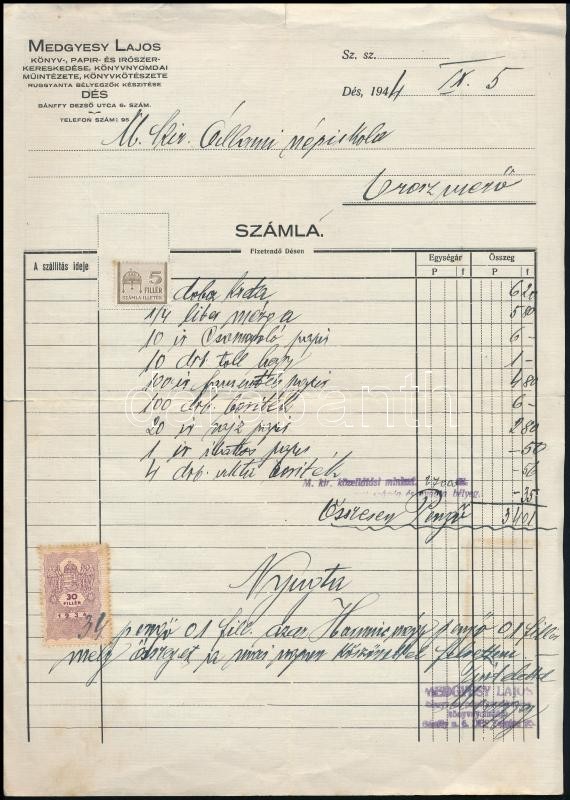 MEDGYESY LAJOS
KÖNYV-, PAPIR- ÉS IRÓSZER-
KERESKEDÉSE, KÖNYVNYOMDAI
MŰINTÉZETE, KÖNYVKÖTÉSZETE
RUGGYANTA BÉLYEGZŐK KÉSZITÉSE
DÉS
BÁNFFY DEZSŐ UTCA 6. SZÁM.
TELEFON SZÁM: 95
Sz. sz.
Dés, 1944 IX. 5
M. kir. Állami népiskola
Oroszmező
SZÁMLA.
Fizetendő Désen
A szállitás ideje
Egységár
Összeg
P f P f
5
FILLÉR
SZÁMLA ILLETÉK
doboz kréta 6 20
1/4 liter 5 80
10 ív Csomagoló papir 6 —
10 drb toll 1 —
100 ív papir 4 80
100 drb. boríték 6 —
20 ív rajz papir 2 80
1 ív papir — 50
4 drb. boríték — 56
M. kir. közellátási miniszt.
— 35
Összesen Pengő 34 01
Nyugta
30
FILLÉR
1934
34 pengő 01 fill. azaz Harmincnégy pengő 01 fillér
mely összeget a mai napon köszönettel felvettem.
MEDGYESY LAJOS